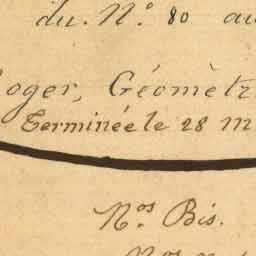 du. N.º 80 au
oger, Géomètr
Terminée le 28 M
N.ºˢ Bis.